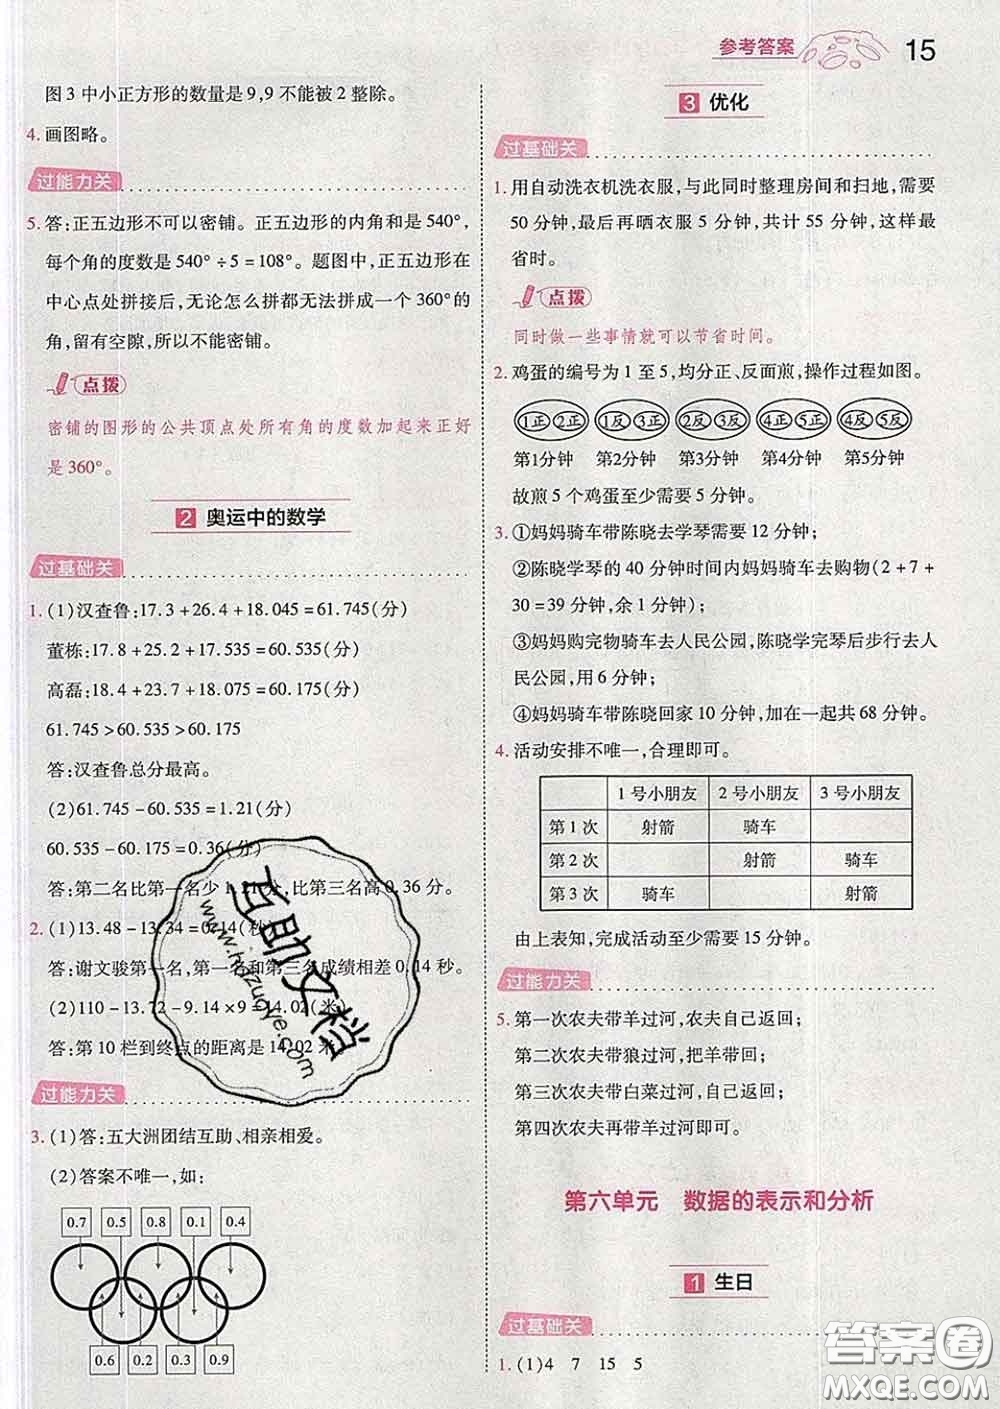 参考答案 15
图3中小正方形的数量是9,9不能被2整除。
4. 画图略。
过能力关
5. 答:正五边形不可以密铺。正五边形的内角和是540°,
每个角的度数是540°÷5=108°。题图中,正五边形在
中心点处拼接后,无论怎么拼都无法拼成一个360°的
角,留有空隙,所以不能密铺。
点拨
密铺的图形的公共顶点处所有角的度数加起来正好
是360°。
2 奥运中的数学
过基础关
1. (1)汉查鲁:17.3+26.4+18.045=61.745(分)
董栋:17.8+25.2+17.535=60.535(分)
高磊:18.4+23.7+18.075=60.175(分)
61.745>60.535>60.175
答:汉查鲁总分最高。
(2)61.745-60.535=1.21(分)
60.535-60.175=0.36(分)
答:第二名比第一名少1.21分,比第三名高0.36分。
2. (1)13.48-13.34=0.14(秒)
答:谢文骏第一名,第一名和第三名成绩相差0.14秒。
(2)110-13.72-9.14×9=14.02(米)
答:第10栏到终点的距离是14.02米。
过能力关
3. (1)答:五大洲团结互助、相亲相爱。
(2)答案不唯一,如:
0.7 0.5 0.8 0.1 0.4
0.6 0.2 0.3 0.9
3 优化
过基础关
1. 用自动洗衣机洗衣服,与此同时整理房间和扫地,需要
50分钟,最后再晒衣服5分钟,共计55分钟,这样最
省时。
点拨
同时做一些事情就可以节省时间。
2. 鸡蛋的编号为1至5,均分正、反面煎,操作过程如图。
①正 ②正 ①反 ③正 ②反 ③反 ④正 ⑤正 ④反 ⑤反
第1分钟 第2分钟 第3分钟 第4分钟 第5分钟
故煎5个鸡蛋至少需要5分钟。
3. ①妈妈骑车带陈晓去学琴需要12分钟;
②陈晓学琴的40分钟时间内妈妈骑车去购物(2+7+
30=39分钟,余1分钟)
③妈妈购完物骑车去人民公园,陈晓学完琴后步行去人
民公园,用6分钟;
④妈妈骑车带陈晓回家10分钟,加在一起共68分钟。
4. 活动安排不唯一,合理即可。
1号小朋友 2号小朋友 3号小朋友
第1次 射箭 骑车
第2次 射箭 骑车
第3次 骑车 射箭
由上表知,完成活动至少需要15分钟。
过能力关
5. 第一次农夫带羊过河,农夫自己返回;
第二次农夫带狼过河,把羊带回;
第三次农夫带白菜过河,自己返回;
第四次农夫再带羊过河即可。
第六单元 数据的表示和分析
1 生日
过基础关
1. (1)4 7 15 5
互助文档
www.huzuoye.com
答案圈
MXQE.COM